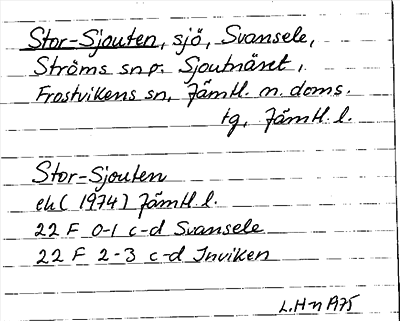 Stor-Sjouten, sjö, Svansele,
Ströms sn o. Sjoutnäset,
Frostvikens sn, Jämtl. n. doms.
tg, Jämtl. l.
Stor-Sjouten
ek (1974) Jämtl. l.
22 F 0-1 c-d Svansele
22 F 2-3 c-d Inviken
L.H-n A75